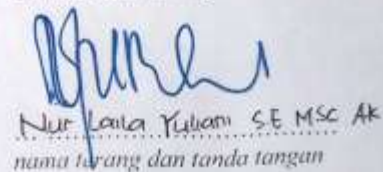 Nur Laila Yuliani SE MSc Ak
nama terang dan tanda tangan